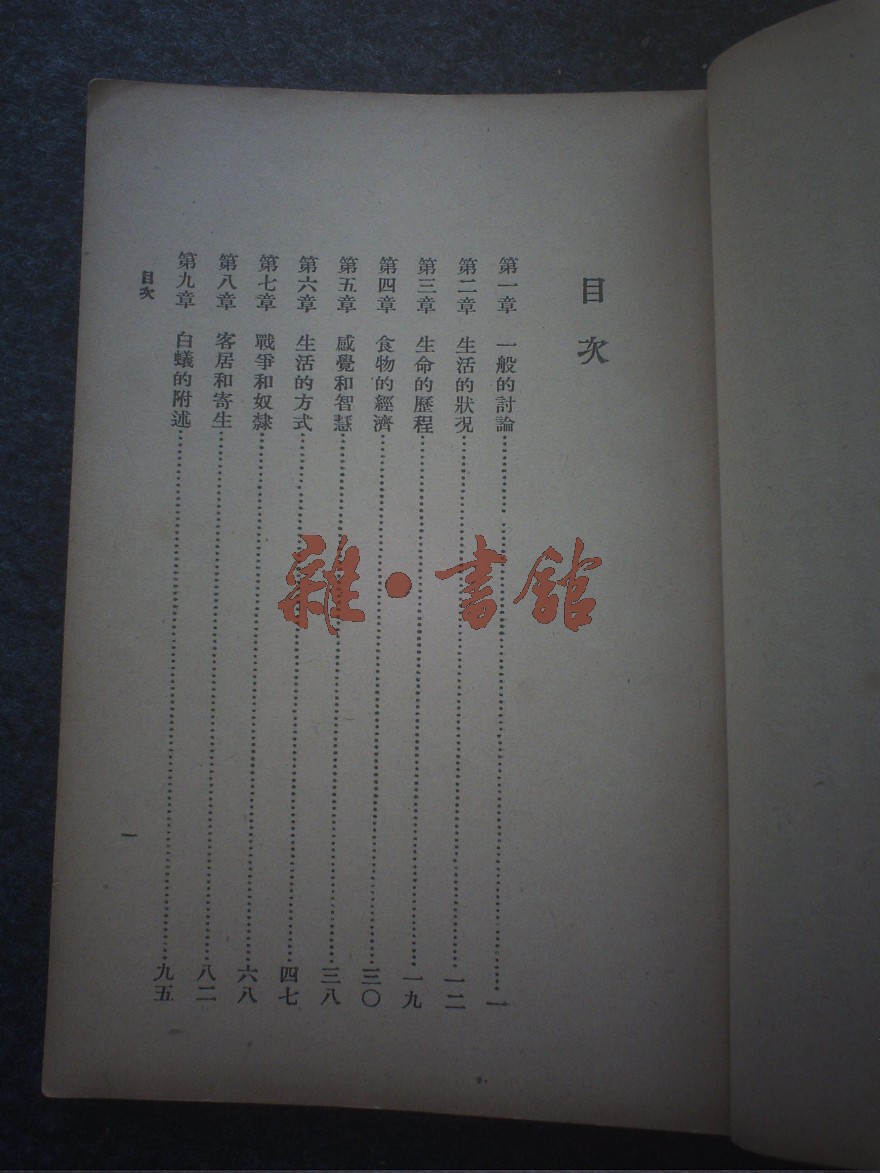 目次
第一章 一般的討論……一
第二章 生活的狀況……一二
第三章 生命的歷程……一九
第四章 食物的經濟……三〇
第五章 感覺和智慧……三八
第六章 生活的方式……四七
第七章 戰爭和奴隸……六八
第八章 客居和寄生……八二
第九章 白蟻的附述……九五
目次
一
雜·書館